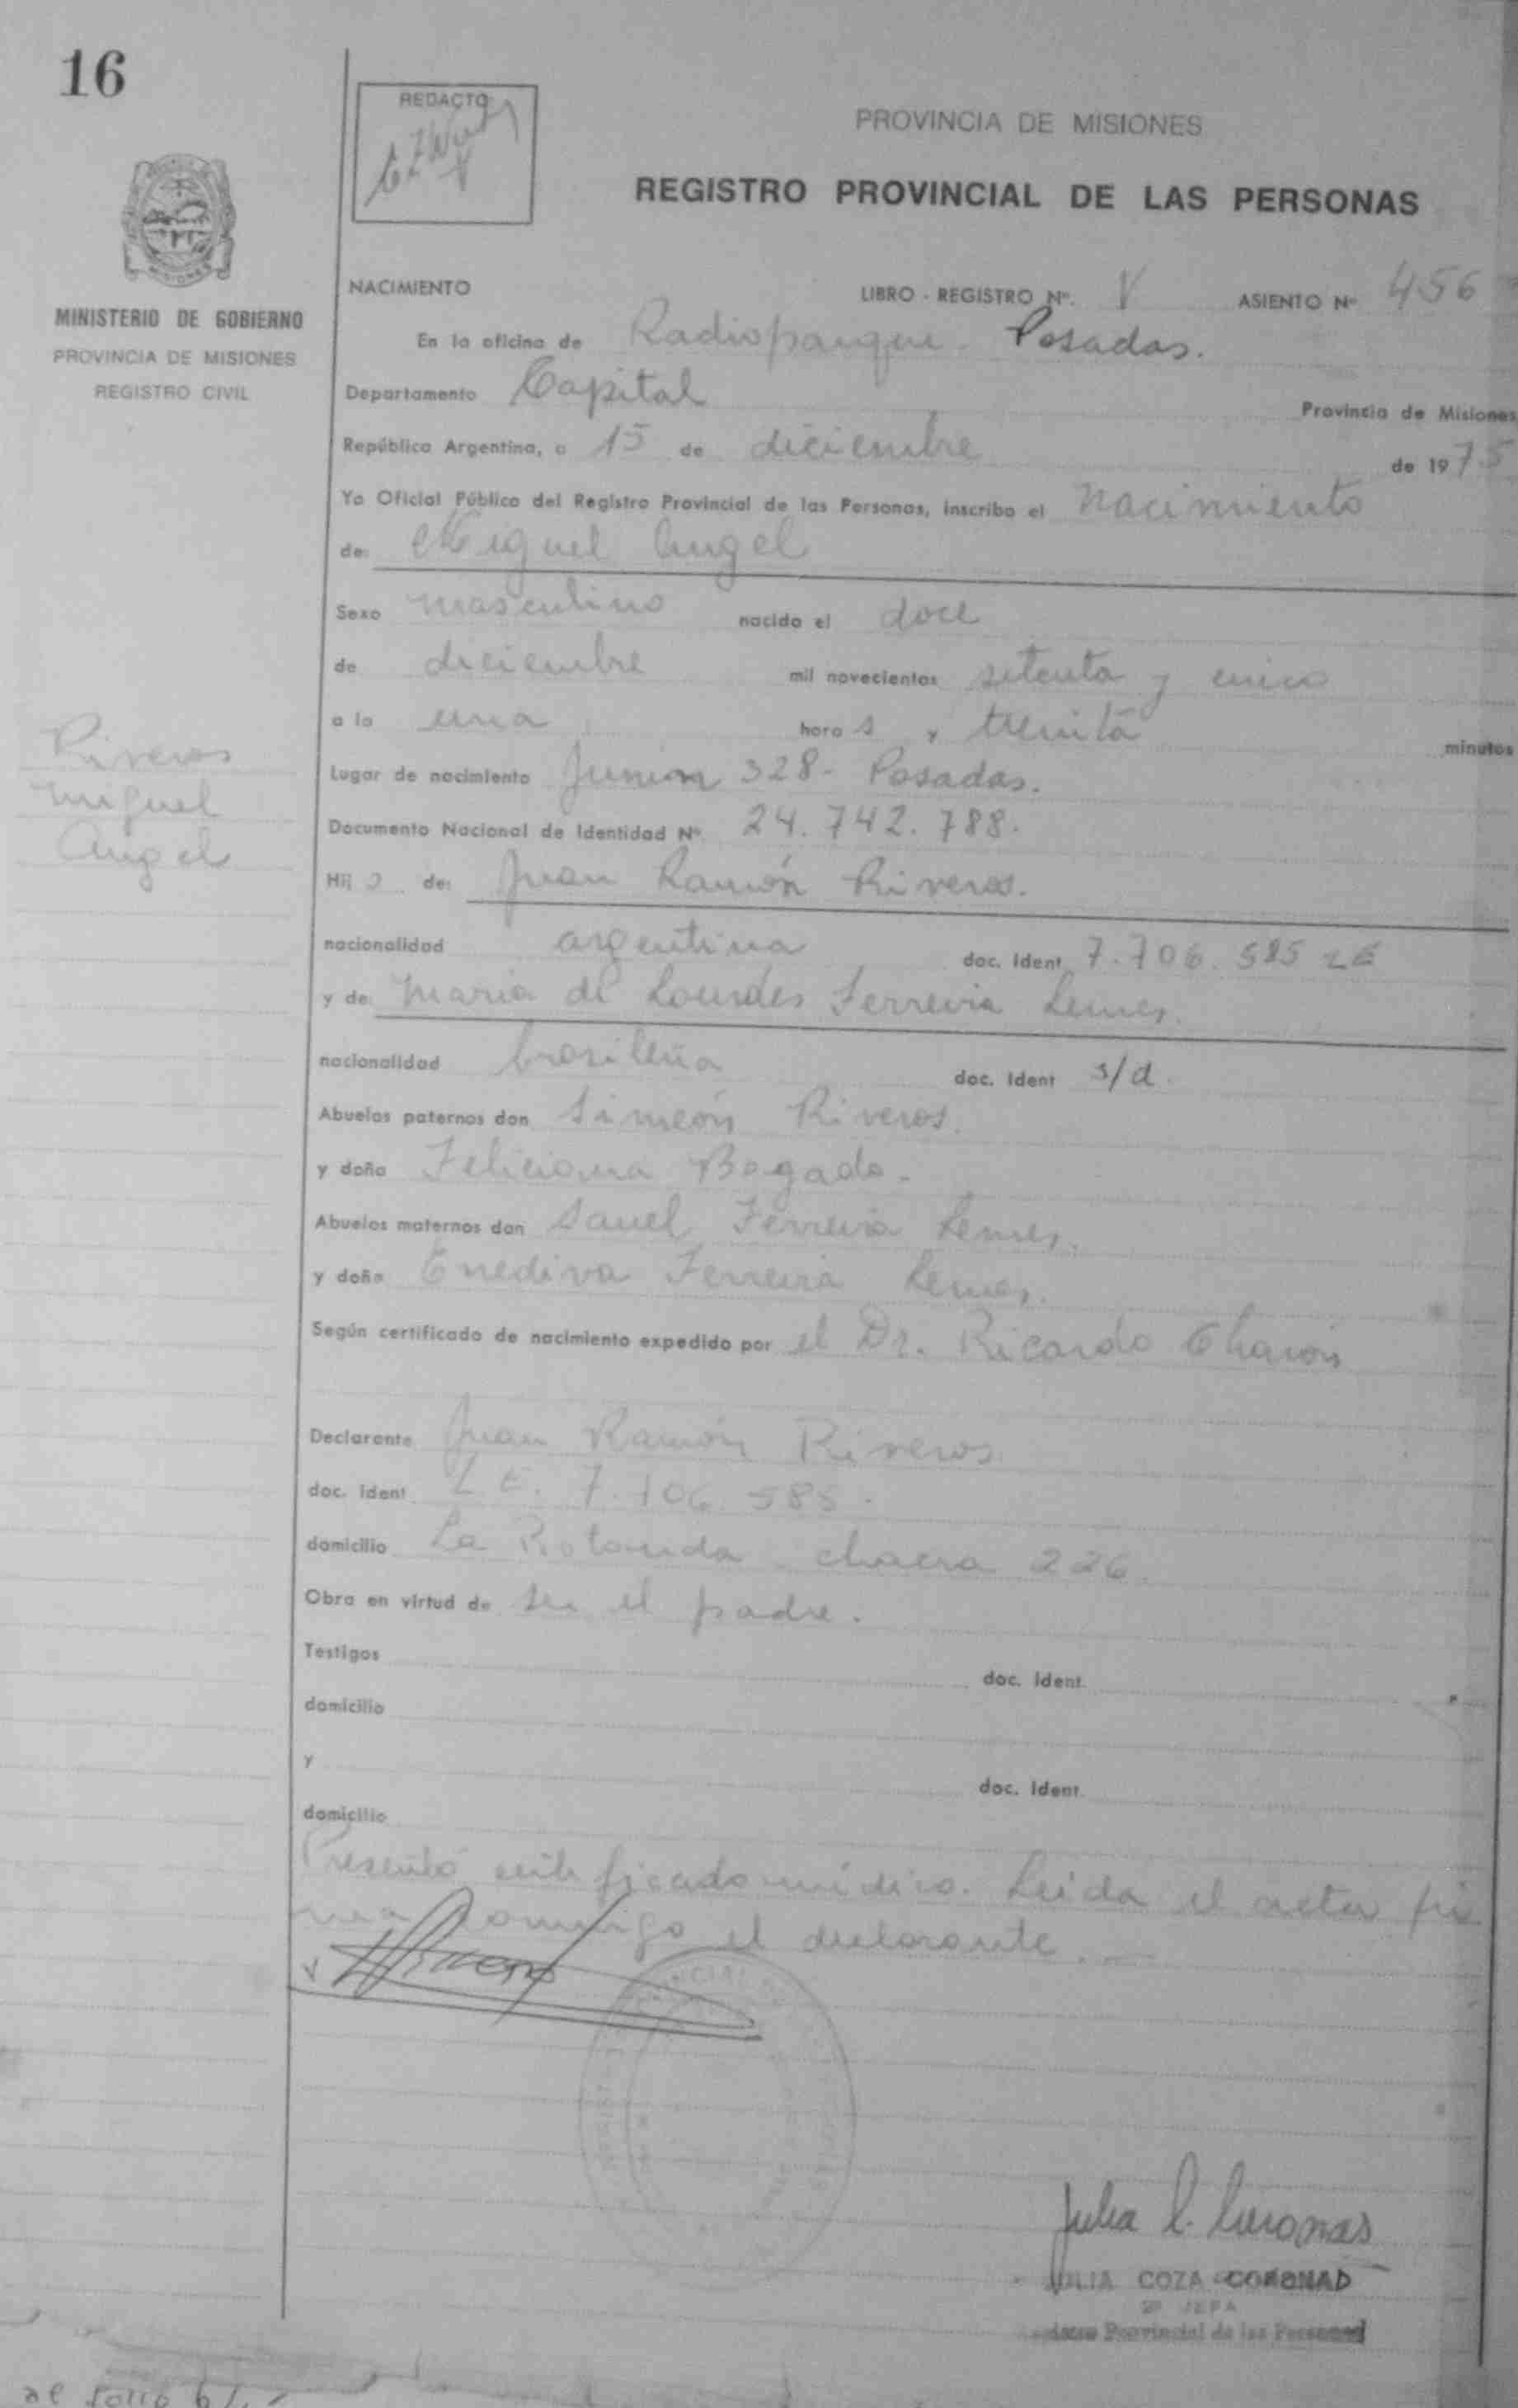 16
REDACTO
PROVINCIA DE MISIONES
REGISTRO PROVINCIAL DE LAS PERSONAS
MINISTERIO DE GOBIERNO
PROVINCIA DE MISIONES
REGISTRO CIVIL
NACIMIENTO LIBRO - REGISTRO Nº. V ASIENTO Nº 456
En la oficina de Radioparque - Posadas.
Departamento Capital Provincia de Misiones
República Argentina, a 15 de diciembre de 1975
Yo Oficial Público del Registro Provincial de las Personas, inscribo el nacimiento
de: Miguel Angel
Sexo masculino nacido el doce
de diciembre mil novecientos setenta y cinco
a la una hora s y treinta minutos
Riveros
Miguel
Angel
Lugar de nacimiento Junin 328 - Posadas.
Documento Nacional de Identidad Nº 24.742.788.
Hij o de: Juan Ramón Riveros.
nacionalidad argentina doc. Ident 7.706.585 LE
y de: Maria de Lourdes Ferreira Lemes.
nacionalidad brasileña doc. Ident s/d.
Abuelos paternos don Simeón Riveros.
y doña Feliciana Bogado.
Abuelos maternos don Ferreira Lemes.
y doña Enediva Ferreira Lemes.
Según certificado de nacimiento expedido por el Dr. Ricardo
Declarante Juan Ramón Riveros
doc. ident L.E. 7.706.585.
domicilio La Rotonda - chacra 226.
Obra en virtud de ser el padre.
Testigos doc. Ident.
domicilio
y doc. Ident.
domicilio
Presentó certificado médico. Leida el acta fir
ma conmigo el declarante.
Julia C. Coronas
JULIA COZA CORONAD
2º JEFA
Provincial de las Personas
al folio